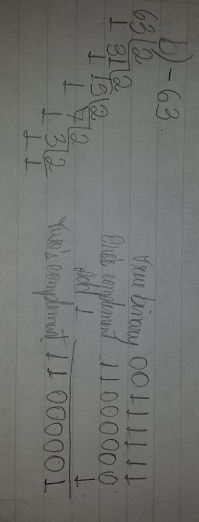 b) - 63.
63 2
1 31 2
1 15 2
1 7 2
1 3 2
1 1
True binary 00111111
One's complement 11000000
Add 1 1
Two's complement 11000001